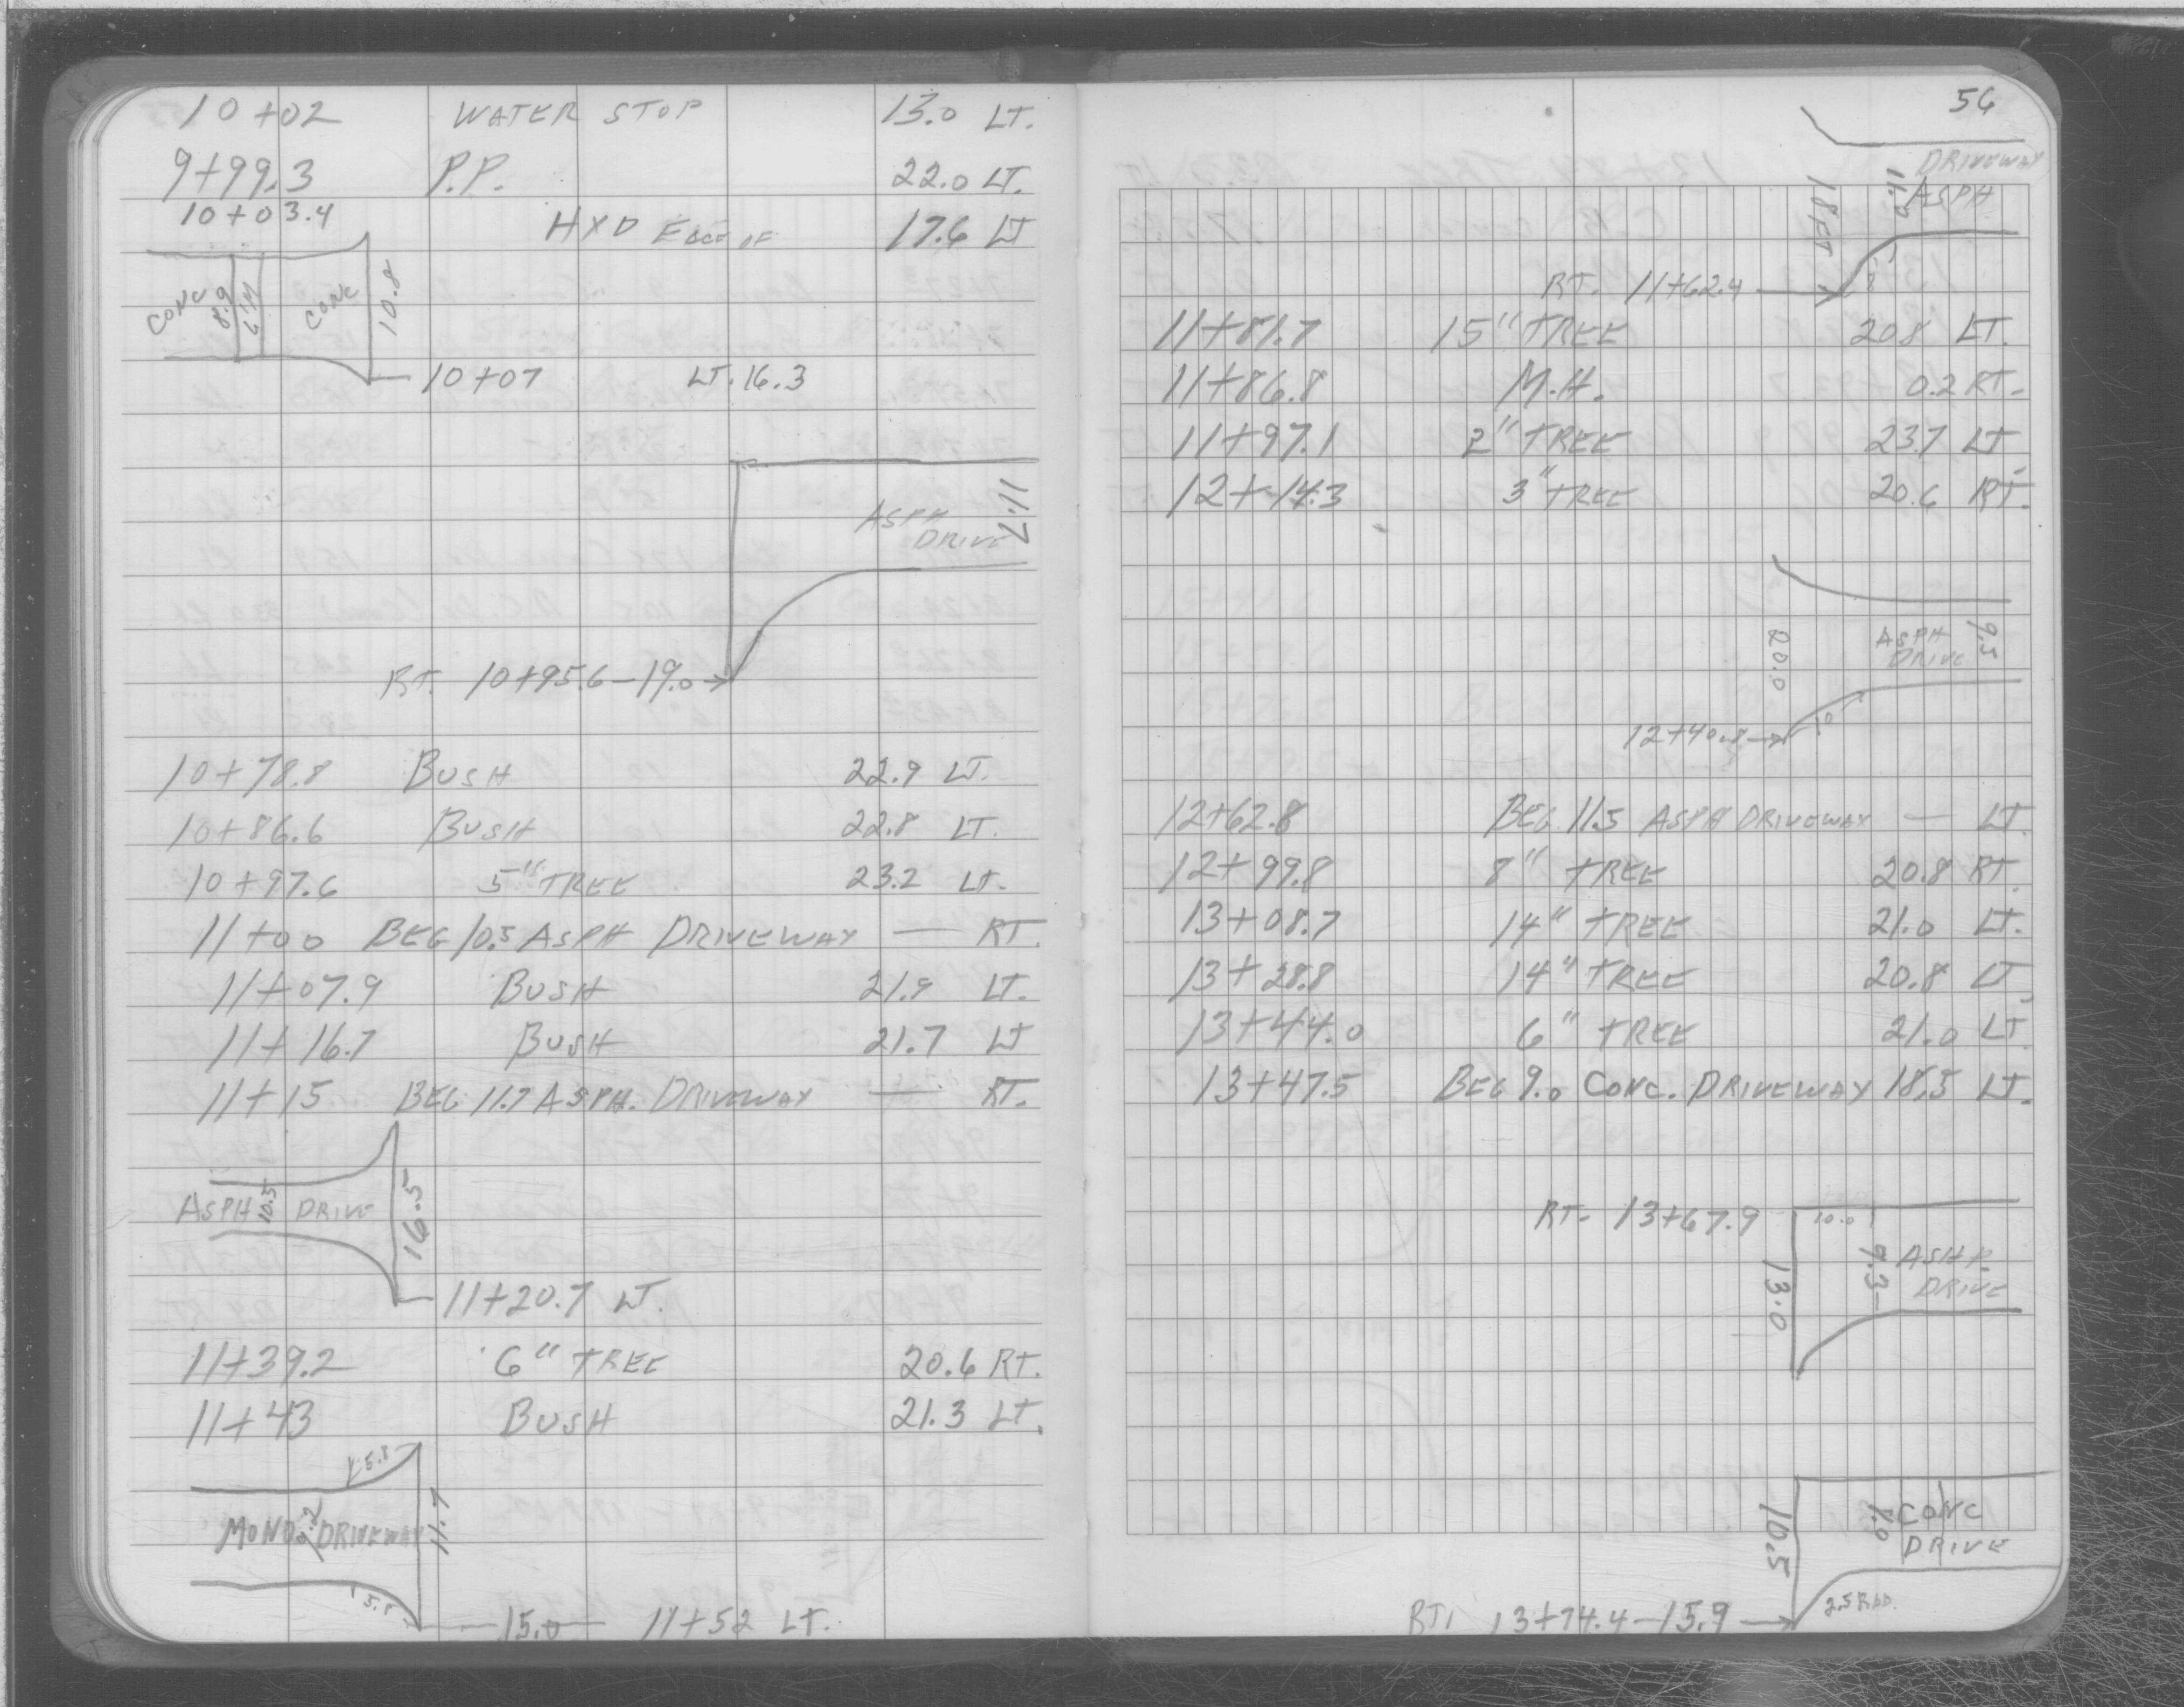 10+02 WATER STOP 13.0 LT.
9+99.3 P.P. 22.0 LT.
10+03.4 HYD EDGE OF 17.6 LT
CONC 8.9 CONC 10.8
10+07 LT. 16.3
ASPH DRIVE 11.7
RT. 10+95.6-19.0
10+78.8 BUSH 22.9 LT.
10+86.6 BUSH 22.8 LT.
10+97.6 5" TREE 23.2 LT.
11+00 BEG 10.5 ASPH DRIVEWAY — RT.
11+07.9 BUSH 21.9 LT.
11+16.7 BUSH 21.7 LT
11+15 BEG 11.7 ASPH. DRIVEWAY — RT.
ASPH 10.5 DRIVE 16.5
11+20.7 LT.
11+39.2 6" TREE 20.6 RT.
11+43 BUSH 21.3 LT.
5.8
MONO 9.2 DRIVEWAY 11.7
5.8
15.0 11+52 LT.
56
DRIVEWAY
18 FT 11.0 ASPH
RT. 11+62.4
11+81.7 15" TREE 20.8 LT.
11+86.8 M.H. 0.2 RT.
11+97.1 2" TREE 23.7 LT
12+14.3 3" TREE 20.6 RT.
20.0 ASPH DRIVE 9.5
12+40.8
12+62.8 BEG 11.5 ASPH DRIVEWAY — LT.
12+99.8 8" TREE 20.8 RT.
13+08.7 14" TREE 21.0 LT.
13+28.8 14" TREE 20.8 LT.
13+44.0 6" TREE 21.0 LT.
13+47.5 BEG 9.0 CONC. DRIVEWAY 18.5 LT.
RT. 13+67.9 10.0
13.0 9.3 ASHP. DRIVE
10.5 CONC
DRIVE
2.5 RAD.
RT. 13+74.4-15.9